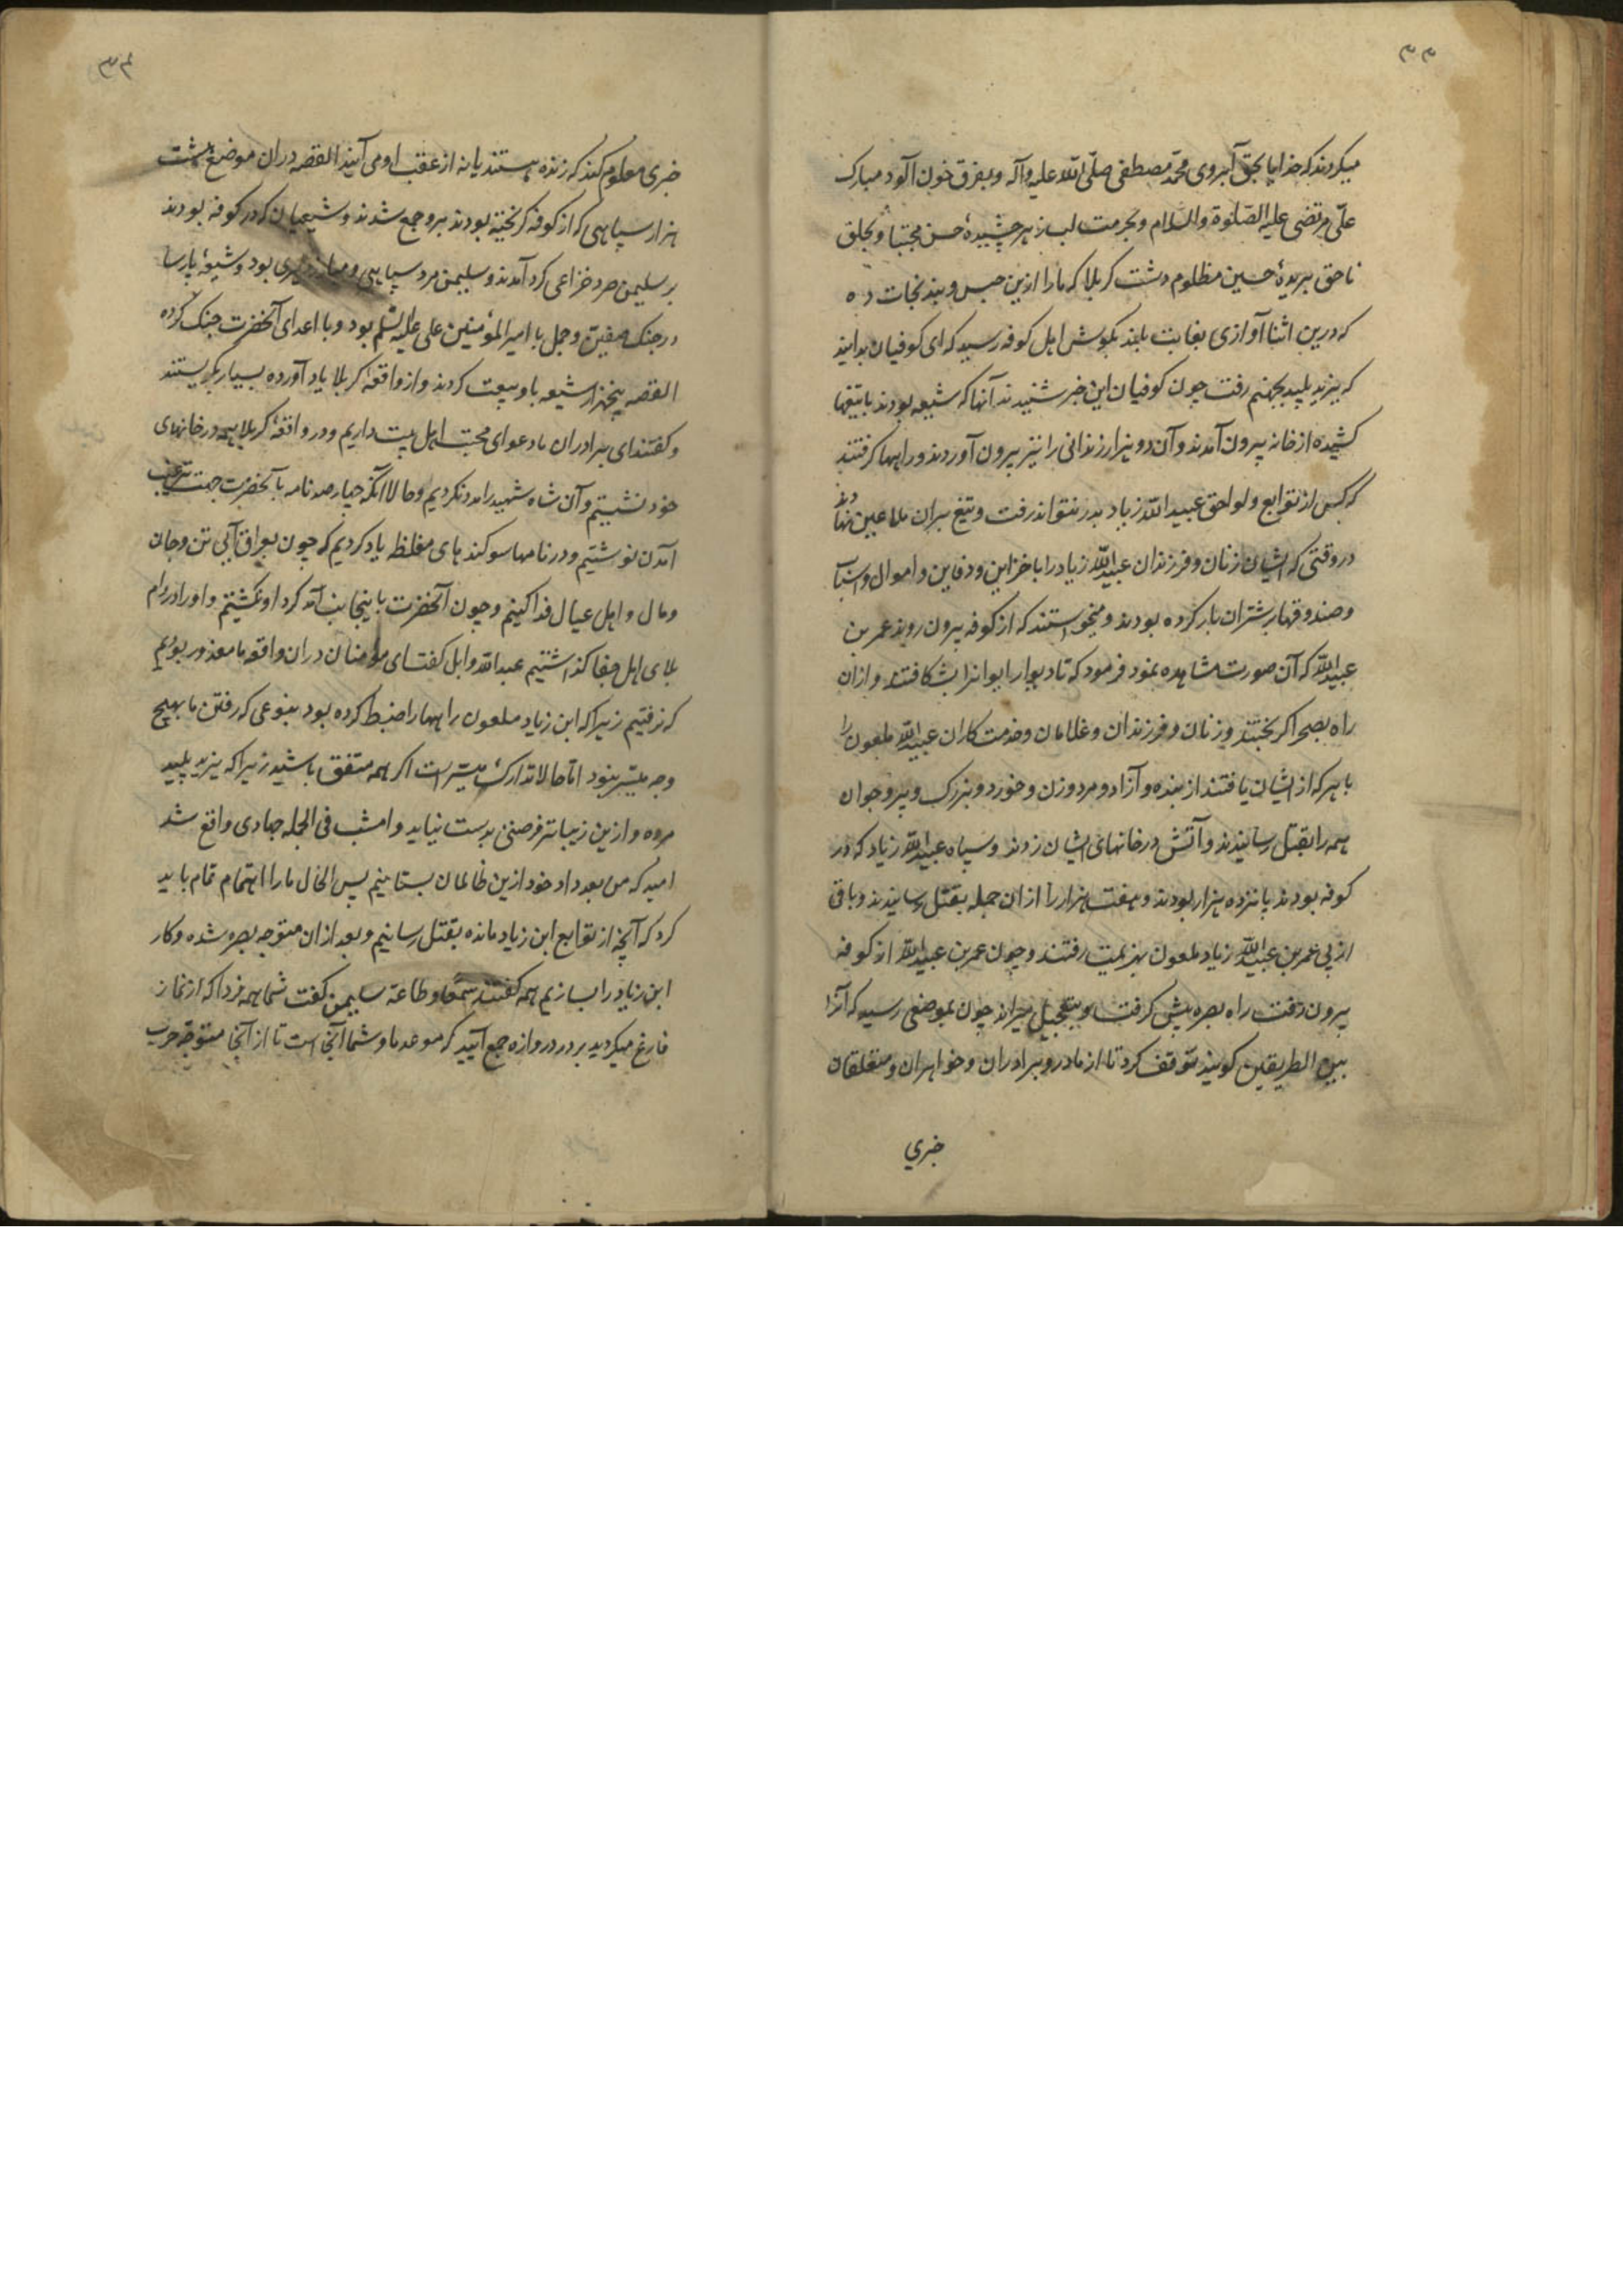 ۳۳
میکردند که خدایا بحق آبروی محمد مصطفی صلّی اللّه علیه وآله و بفرق خون آلود مبارک
علی مرتضی علیه الصّلوة والسلام و بحرمت لب زهر چشیدهٔ حسن مجتبا و بحلق
ناحق بریدهٔ حسین مظلوم دشت کربلا که ما را ازین حبس و بند نجات ده
که درین اثنا آوازی بغایت بلند بکوش اهل کوفه رسید که ای کوفیان بدانید
که یزید پلید بجهنم رفت چون کوفیان این خبر شنیدند آنها که شیعه بودند با تیغها
کشیده از خانه بیرون آمدند و آن دو هزار زندانی را نیز بیرون آوردند و راهها کرفتند
که کس از توابع و لواحق عبید اللّه زیاد بدر نتواند رفت و تیغ بران ملاعین نهادند
در وقتی که ایشان زنان و فرزندان عبید اللّه زیاد را با خزاین و دفاین و اموال و اسباب
و صندوقها بر شتران بار کرده بودند و میخواستند که از کوفه بیرون روند عمر بن
عبید اللّه که آن صورت مشاهده نمود فرمود که تا دیوار ایوانرا بشکافتند و ازان
راه بصحرا کریختند و زنان و فرزندان و غلامان و خدمت کاران عبید اللّه ملعون را
با هر که از ایشان یافتند از بنده و آزاد و مرد و زن و خورد و بزرک و پیر و جوان
همه را بقتل رسانیدند و آتش در خانهای ایشان زدند و سپاه عبید اللّه زیاد که در
کوفه بودند پانزده هزار بودند و هفت هزار را ازان جمله بقتل رسانیدند و باقی
از پی عمر بن عبید اللّه زیاد ملعون بهزیمت رفتند و چون عمر بن عبید اللّه از کوفه
بیرون رفت راه بصره پیش کرفت و بتعجیل میراند چون بموضعی رسید که آنرا
بین الطریقین کویند توقف کرد تا از مادر و برادران و خواهران و متعلقان
خبری
۳۴
خبری معلوم کند که زنده هستند یا نه از عقب او می آیند القصه دران موضع هشت
هزار سپاهی که از کوفه کریخته بودند برو جمع شدند و شیعیان که در کوفه بودند
بر سلیمن صرد خزاعی کرد آمدند و سلیمن مرد سپاهی و مبارز دلیری بود و شیعهٔ پارسا
در جنک صفین و جمل با امیر المؤمنین علی علیه السّلم بود و با اعدای آنحضرت جنک کرده
القصه پنجهزار شیعه با او بیعت کردند و از واقعهٔ کربلا یاد آورده بسیار بکریستند
و کفتند ای برادران ما دعوای محبت اهل بیت داریم و در واقعهٔ کربلا همه در خانهای
خود نشستیم و آن شاه شهید را مدد نکردیم و حالا آنکه چهار صد نامه بآنحضرت جهت
آمدن نوشتیم و در نامها سوکند های مغلظه یاد کردیم که چون بعراق آیی تن و جان
و مال و اهل عیال فدا کنیم و چون آنحضرت باینجانب آمد کرد او نکشتیم و او را در دام
بلای اهل جفا کذاشتیم عبد اللّه وابل کفت ای مؤمنان دران واقعه ما معذور بودیم
که نرفتیم زیرا که ابن زیاد ملعون راهها را ضبط کرده بود بنوعی که رفتن ما بهیچ
وجه میسّر نبود امّا حالا تدارک میسّر است اکر همه متفق باشید زیرا که یزید پلید
مرده و ازین زیباتر فرصتی بدست نیاید و امشب فی الجمله جهادی واقع شد
امید که من بعد داد خود ازین ظالمان بستانیم پس الحال ما را اهتمام تمام باید
کرد که آنچه از توابع ابن زیاد مانده بقتل رسانیم و بعد ازان متوجه بصره شده و کار
ابن زیاد را بسازیم همه کفتند سمعًا و طاعة سلیمن کفت شما همه فردا که از نماز
فارغ میکردید بر در دروازه جمع آیید که موعد ما و شما آنجا است تا از آنجا متوجّه حرب